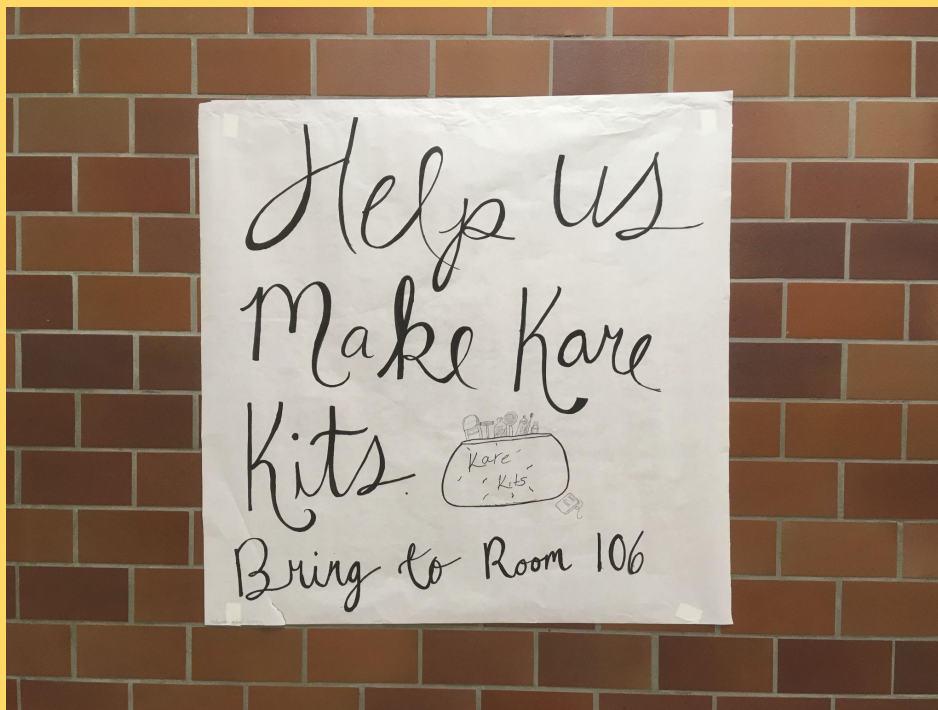 Help us
Make Kare
Kits.
Kare
Kits
Bring to Room 106